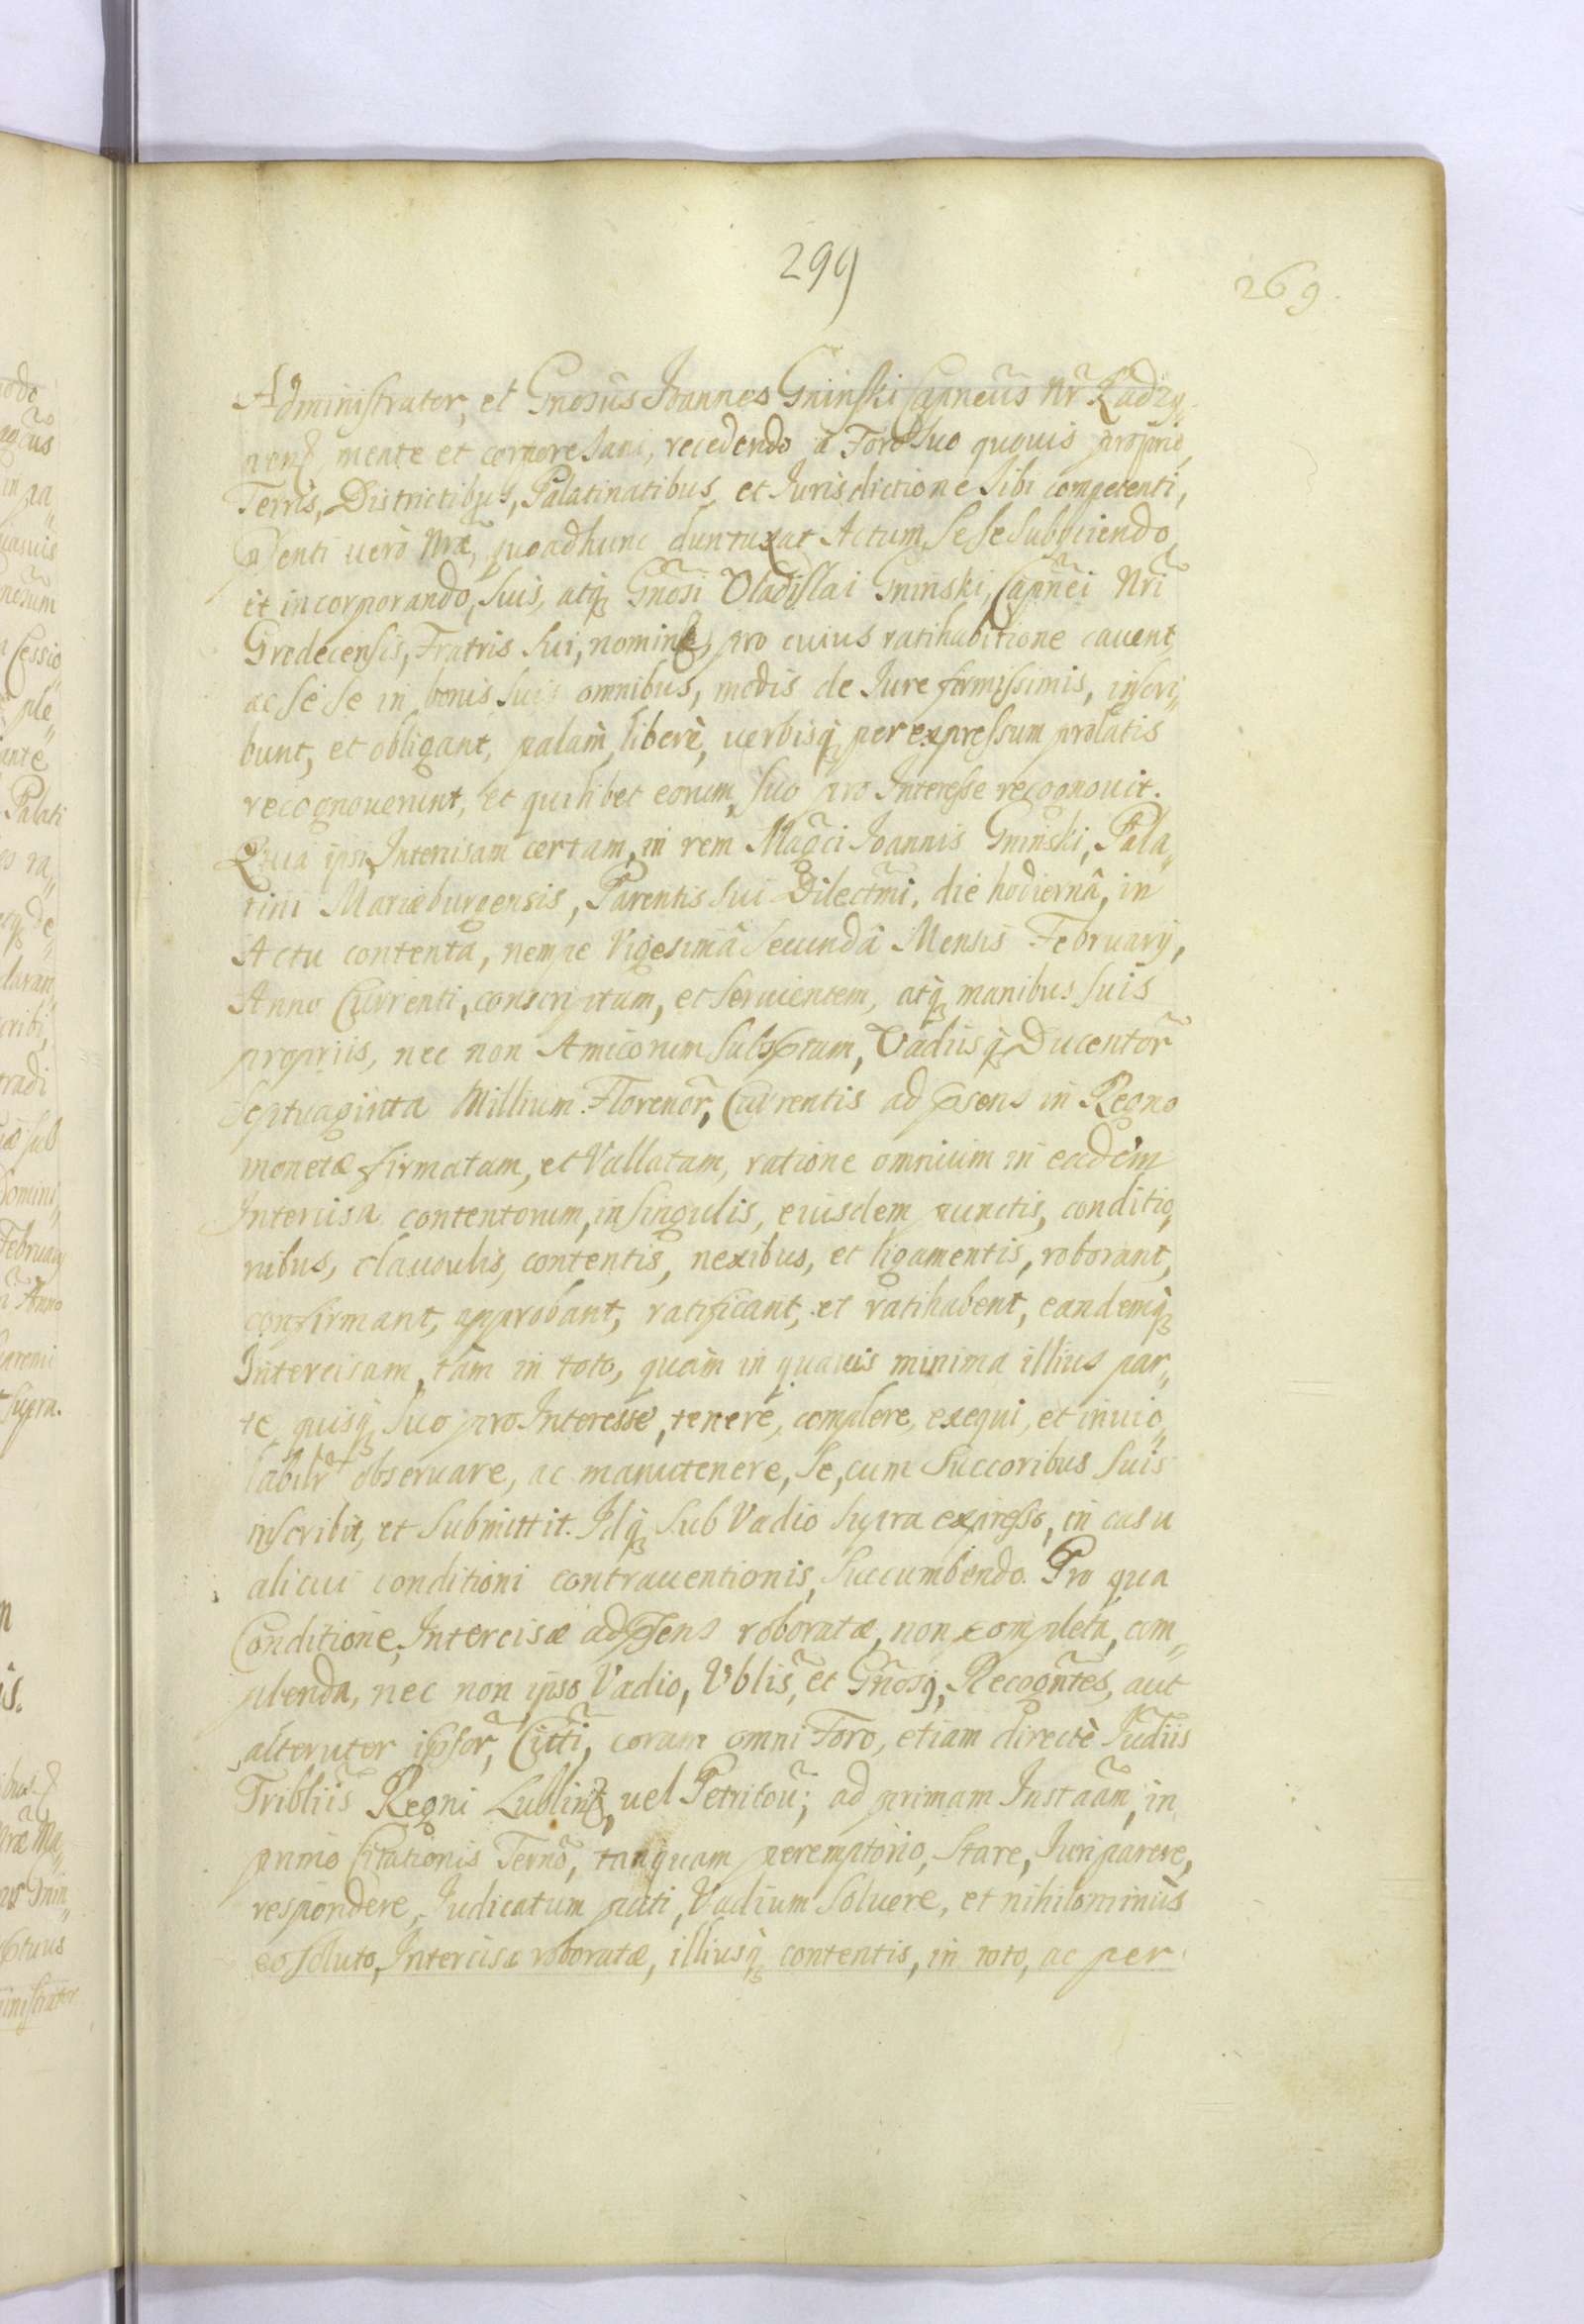 299
269.
Administrator, et Gnosus Joannes Gninski Capneus Nr Radzy„
nens, mente et corpore sani, recedendo a Foro suo quouis proprio,
Terris, Districtibus, Palatinatibus, et Jurisdictione sibi competenti,
psenti uero Nræ, quoad hunc duntaxat Actum sese subijciendo
et incorporando, suis, atq Gnosi Vladislai Gninski, Capnei Nri
Grodecensis, Fratris sui, nomine, pro cuius ratihabitione cauent
ac se se in bonis suis omnibus, modis de Jure firmissimis, inscri„
bunt, et obligant, palam, libere, uerbisq per expressum prolatis
recognouerunt, et quilibet eorum, suo pro Interesse recognouit.
Quia ipsi Intercisam certam, in rem Magci Joannis Gninski, Pala„
tini Mariæburgensis, Parentis sui Dilectmi, die hodiernâ, in
Actu contentâ, nempe Vigesimâ Secundâ Mensis February,
Anno Currenti, conscriptam, et seruientem, atq manibus suis
propriis, nec non Amicorum subsptam, Vadiisq Ducentor
Septuaginta Millium Florenor, Currentis ad psens in Regno
monetæ firmatam, et Vallatam, ratione omnium in eadem
Intercisa contentorum, in singulis, eiusdem punctis, conditio„
nibus, clausulis, contentis, nexibus, et ligamentis, roborant,
confirmant, approbant, ratificant, et ratihabent, eandemq
Intercisam, tàm in toto, quàm in quauis minima illius par„
te, quisq suo pro Interesse, tenere, complere, exequi, et inuio„
labilr obseruare, ac manutenere, se, cum Succoribus suis
inscribit, et submittit. Idq sub Vadio supra expresso, in casu
alicui conditioni contrauentionis, succumbendo. Pro qua
Conditione, Intercisæ ad psens roboratæ, non completa, com„
plenda, nec non ipso Vadio, Vblis, et Gnosq, Recogntes, aut
alteruter ipsor, Citti, coram omni Foro, etiam directè Judiis
Tribliis Regni Lublin, uel Petricou; ad primam Instaam, in
primo Citationis Terno, tanquam peremptorio, stare, Juri parere,
respondere, Judicatum pati, Vadium soluere, et nihilominùs
eo soluto, Intercisæ roboratæ, illiusq contentis, in toto, ac per